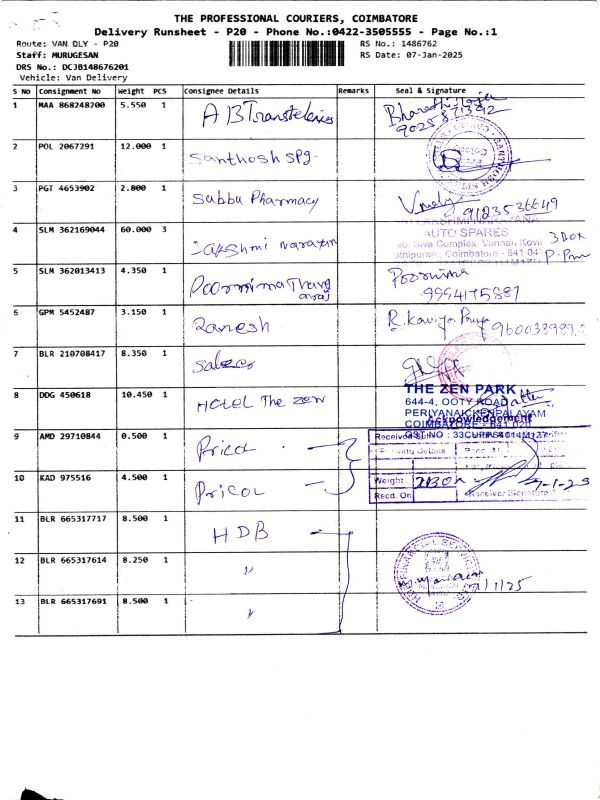 THE PROFESSIONAL COURIERS, COIMBATORE
Delivery Runsheet - P20 - Phone No.:0422-3505555 - Page No.:1
Route: VAN DLY - P20 RS No.: 1486762
Staff: MURUGESAN RS Date: 07-Jan-2025
DRS No.: DCJB148676201
Vehicle: Van Delivery
S No Consignment No Weight PCS Consignee Details Remarks Seal & Signature
1 MAA 868248200 5.550 1
2 POL 2067291 12.000 1 Santhosh spg-
3 PGT 4653902 2.800 1 Subbu Pharmacy
9123536649
4 SLM 362169044 60.000 3 Lakshmi narayan
AUTO SPARES
Siva Complex, Vannan Kovil 3 Box
Coimbatore - 641 041
5 SLM 362013413 4.350 1 Poornima Thang Poornima
araj 9994175887
6 GPM 5452487 3.150 1 Ranesh R. Kaviya Priya
7 BLR 210708417 8.350 1
8 DDG 450618 10.450 1 HOTEL The ZEN THE ZEN PARK
644-4, OOTY ROAD
PERIYANAICKENPALAYAM
COIMBATORE - 641 020
Acknowledgement
9 AMD 29710844 0.500 1 Pricol
10 KAD 975516 4.500 1 Pricol Weight 2 BOX
Recd. On Receiver Signature
11 BLR 665317717 8.500 1 HDB
12 BLR 665317614 8.250 1 "
13 BLR 665317691 8.500 1 "